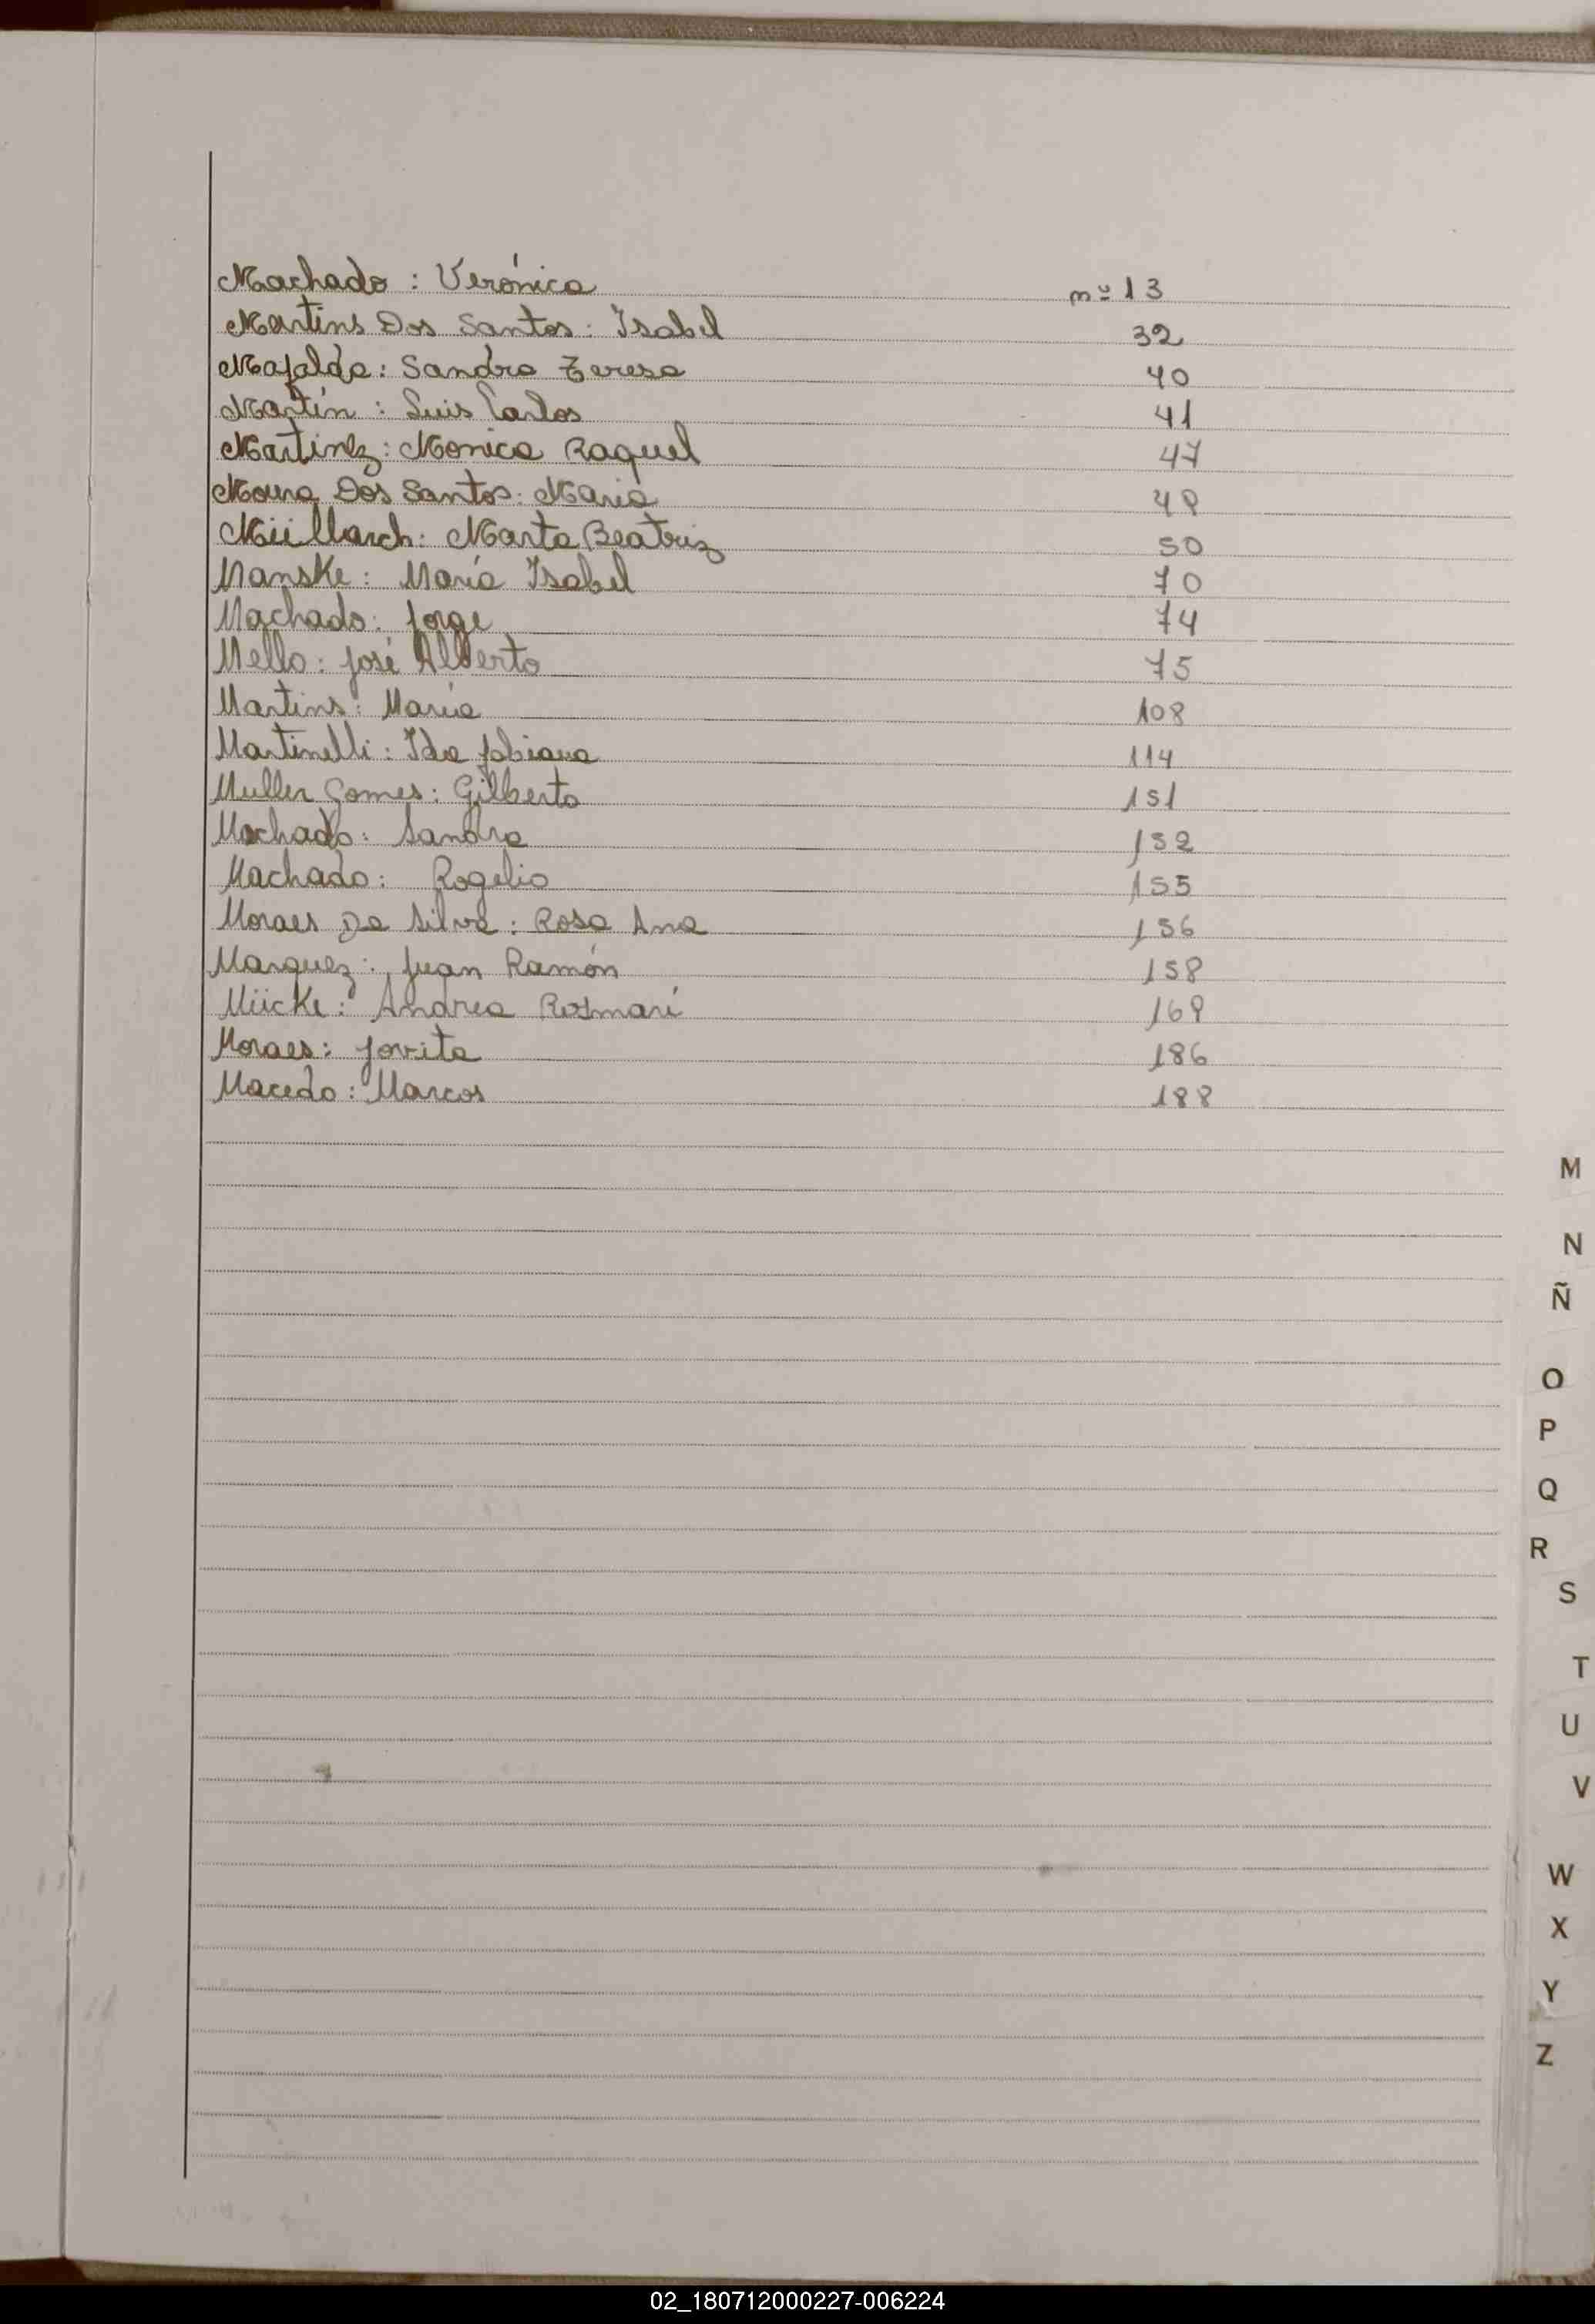 Machado : Verónica nº 13
Martins Dos Santos : Isabel 32
Mafalda : Sandra Teresa 40
Martín : Luis Carlos 41
Martinez : Monica Raquel 47
Moura Dos Santos : Maria 48
Müllarch : Marta Beatriz 50
Manske : María Isabel 70
Machado : Jorge 74
Mello : José Alberto 75
Martins : Maria 108
Martinelli : Ida fabiana 114
Muller Gomes : Gilberto 151
Machado : Sandra 152
Machado : Rogelio 155
Moraes Da Silva : Rosa Ana 156
Marquez : Juan Ramón 158
Mücke : Andrea Rosmari 169
Moraes : Jovita 186
Macedo : Marcos 188
M
N
Ñ
O
P
Q
R
S
T
U
V
W
X
Y
Z
02_180712000227-006224